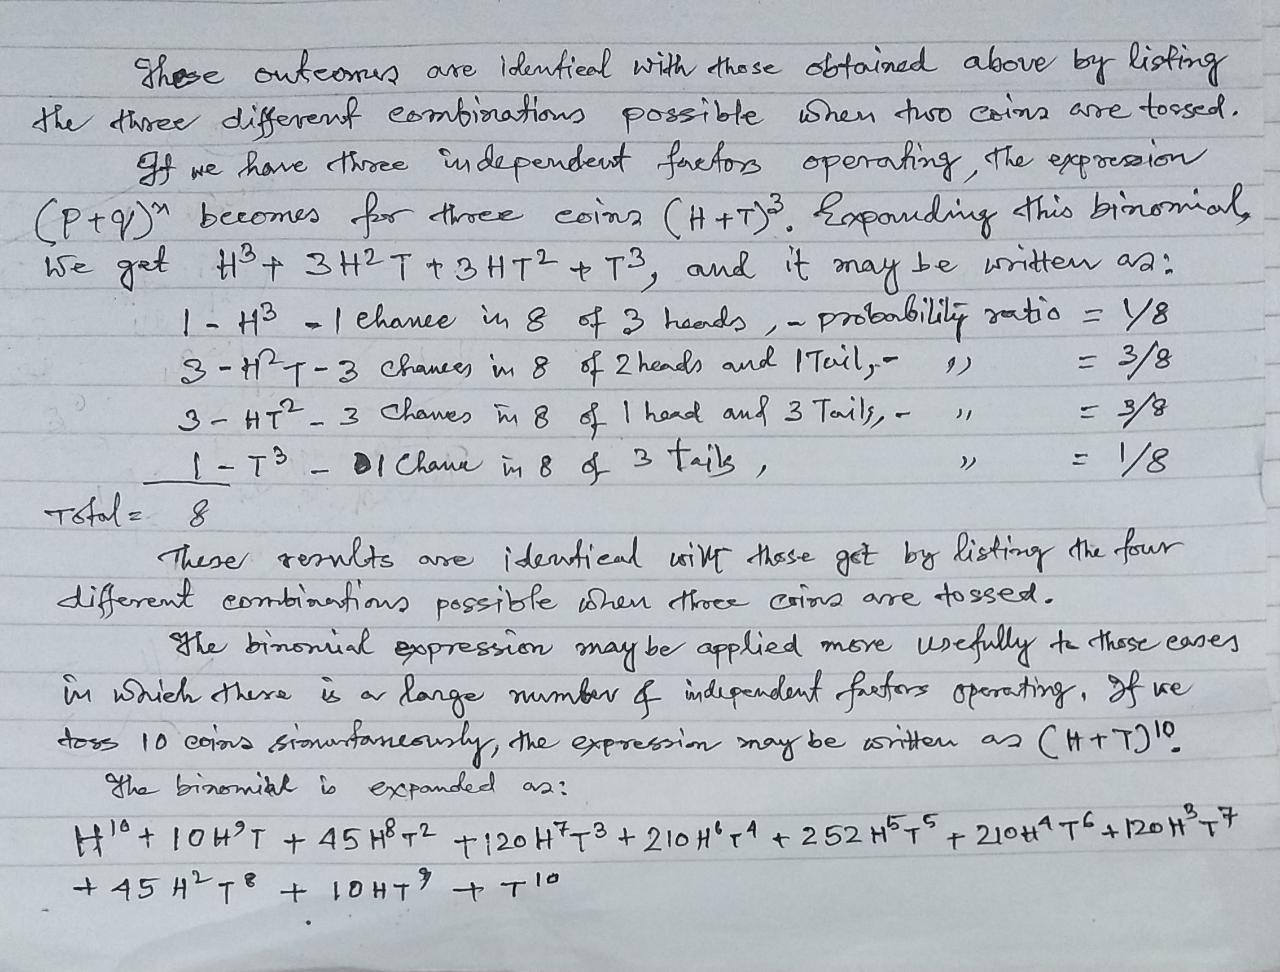 These outcomes are identical with those obtained above by listing
the three different combinations possible when two coins are tossed.
If we have three independent factors operating, the expression
(p+q)ⁿ becomes for three coins (H+T)³. Expanding this binomial,
We get H³ + 3H²T + 3HT² + T³, and it may be written as:
1 - H³ - 1 chance in 8 of 3 heads, - probability ratio = 1/8
3 - H²T - 3 chances in 8 of 2 heads and 1 Tail, - ,, = 3/8
3 - HT² - 3 chances in 8 of 1 head and 3 Tails, - ,, = 3/8
1 - T³ - 1 Chance in 8 of 3 tails, ,, = 1/8
Total = 8
These results are identical with those get by listing the four
different combinations possible when three coins are tossed.
The binomial expression may be applied more usefully to those cases
in which there is a large number of independent factors operating. If we
toss 10 coins simultaneously, the expression may be written as (H+T)¹⁰.
The binomial is expanded as:
H¹⁰ + 10H⁹T + 45H⁸T² + 120H⁷T³ + 210H⁶T⁴ + 252H⁵T⁵ + 210H⁴T⁶ + 120H³T⁷
+ 45H²T⁸ + 10HT⁹ + T¹⁰